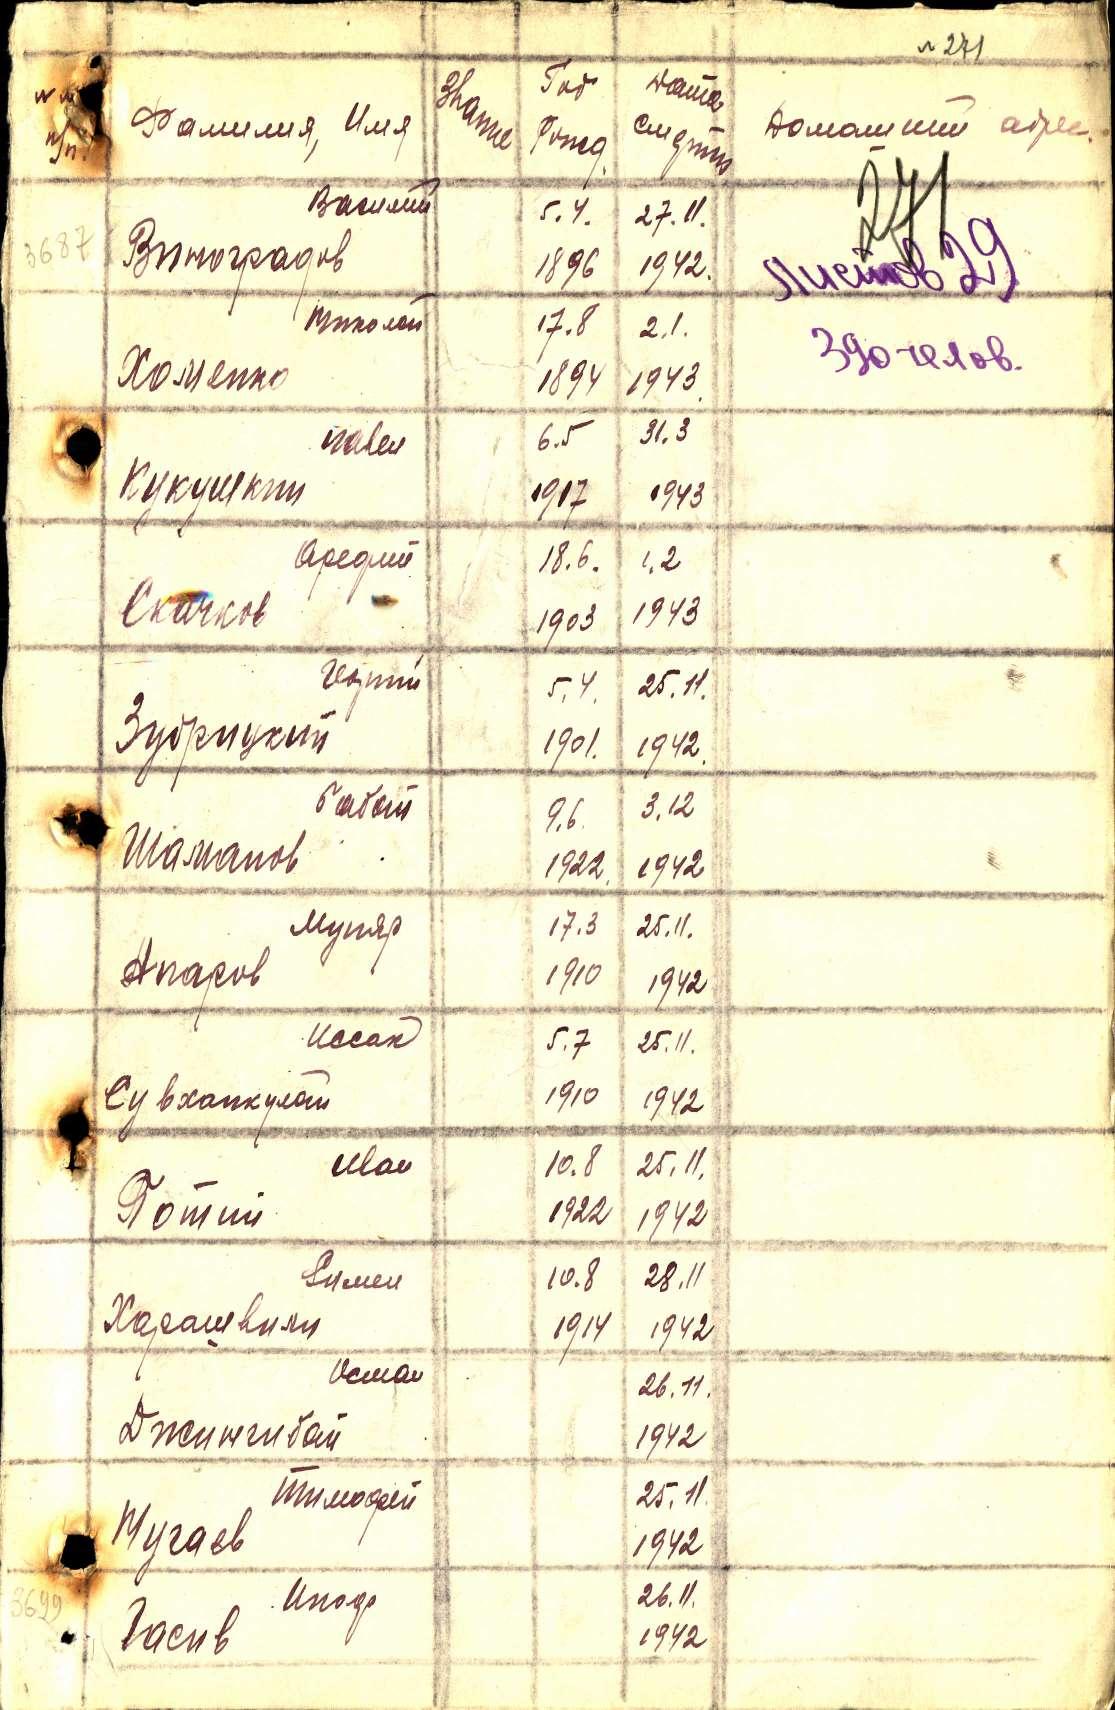 л 271
№ №
п/п.
Фамилия, Имя
Звание
Год
Рожд.
Дата
смерти
Домашний адрес.
271
Листов 29
390 челов.
3687
Василий 5.4. 27.11.
Виноградов 1896 1942.
Николай 17.8 2.1.
Хоменко 1894 1943.
Павел 6.5 31.3
Кукушкин 1917 1943
18.6. 1.2
Скачков 1903 1943
Георгий 5.4. 25.11.
Зубрицкий 1901. 1942.
Бабай 9.6. 3.12
Шаманов 1922. 1942
Мупяр 17.3 25.11.
Апаров 1910 1942
Иссак 5.7 25.11.
Сувханкулай 1910 1942
Иван 10.8 25.11.
Потий 1922 1942
Симен 10.8 28.11
Харашвили 1914 1942
Осман 26.11.
Джингибай 1942
Тимофей 25.11.
Нугаев 1942
3699
26.11.
Гасив 1942